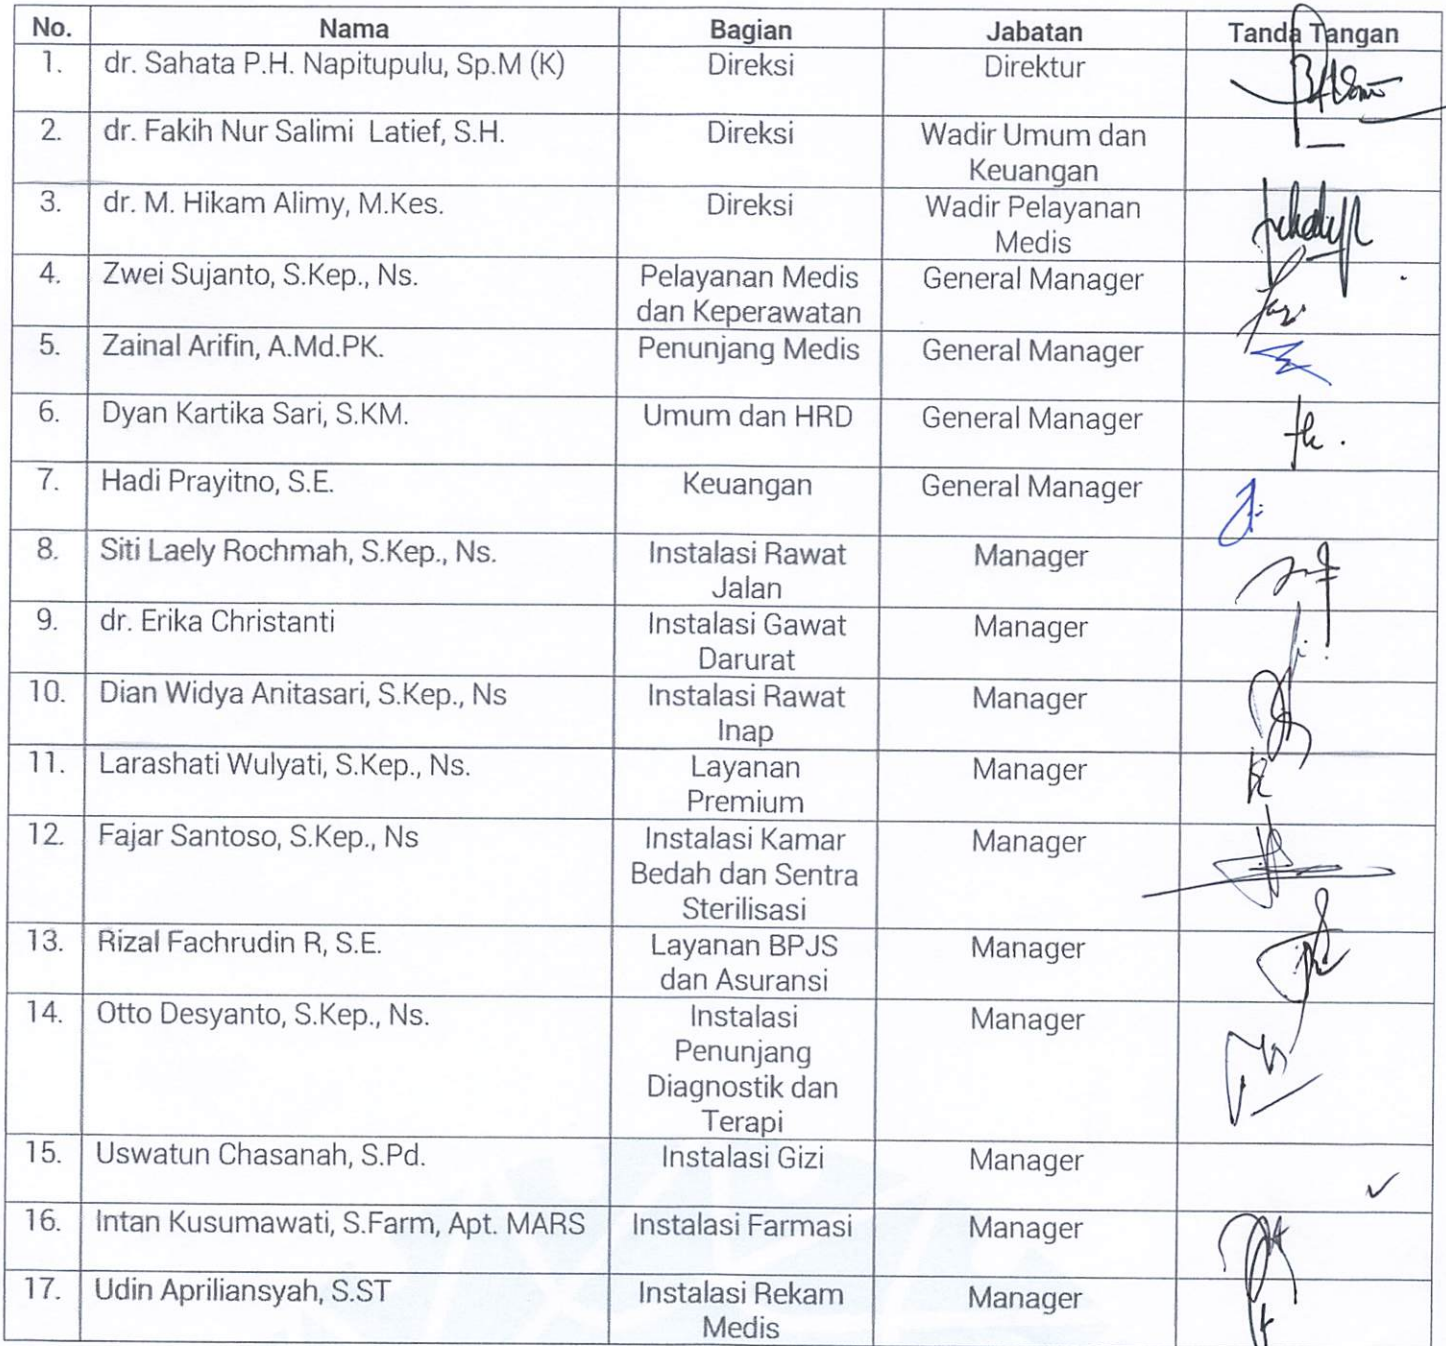 No. Nama Bagian Jabatan Tanda Tangan
1. dr. Sahata P.H. Napitupulu, Sp.M (K) Direksi Direktur
2. dr. Fakih Nur Salimi Latief, S.H. Direksi Wadir Umum dan
Keuangan
3. dr. M. Hikam Alimy, M.Kes. Direksi Wadir Pelayanan
Medis
4. Zwei Sujanto, S.Kep., Ns. Pelayanan Medis General Manager
dan Keperawatan
5. Zainal Arifin, A.Md.PK. Penunjang Medis General Manager
6. Dyan Kartika Sari, S.KM. Umum dan HRD General Manager
7. Hadi Prayitno, S.E. Keuangan General Manager
8. Siti Laely Rochmah, S.Kep., Ns. Instalasi Rawat Manager
Jalan
9. dr. Erika Christanti Instalasi Gawat Manager
Darurat
10. Dian Widya Anitasari, S.Kep., Ns Instalasi Rawat Manager
Inap
11. Larashati Wulyati, S.Kep., Ns. Layanan Manager
Premium
12. Fajar Santoso, S.Kep., Ns Instalasi Kamar Manager
Bedah dan Sentra
Sterilisasi
13. Rizal Fachrudin R, S.E. Layanan BPJS Manager
dan Asuransi
14. Otto Desyanto, S.Kep., Ns. Instalasi Manager
Penunjang
Diagnostik dan
Terapi
15. Uswatun Chasanah, S.Pd. Instalasi Gizi Manager
16. Intan Kusumawati, S.Farm, Apt. MARS Instalasi Farmasi Manager
17. Udin Apriliansyah, S.ST Instalasi Rekam Manager
Medis